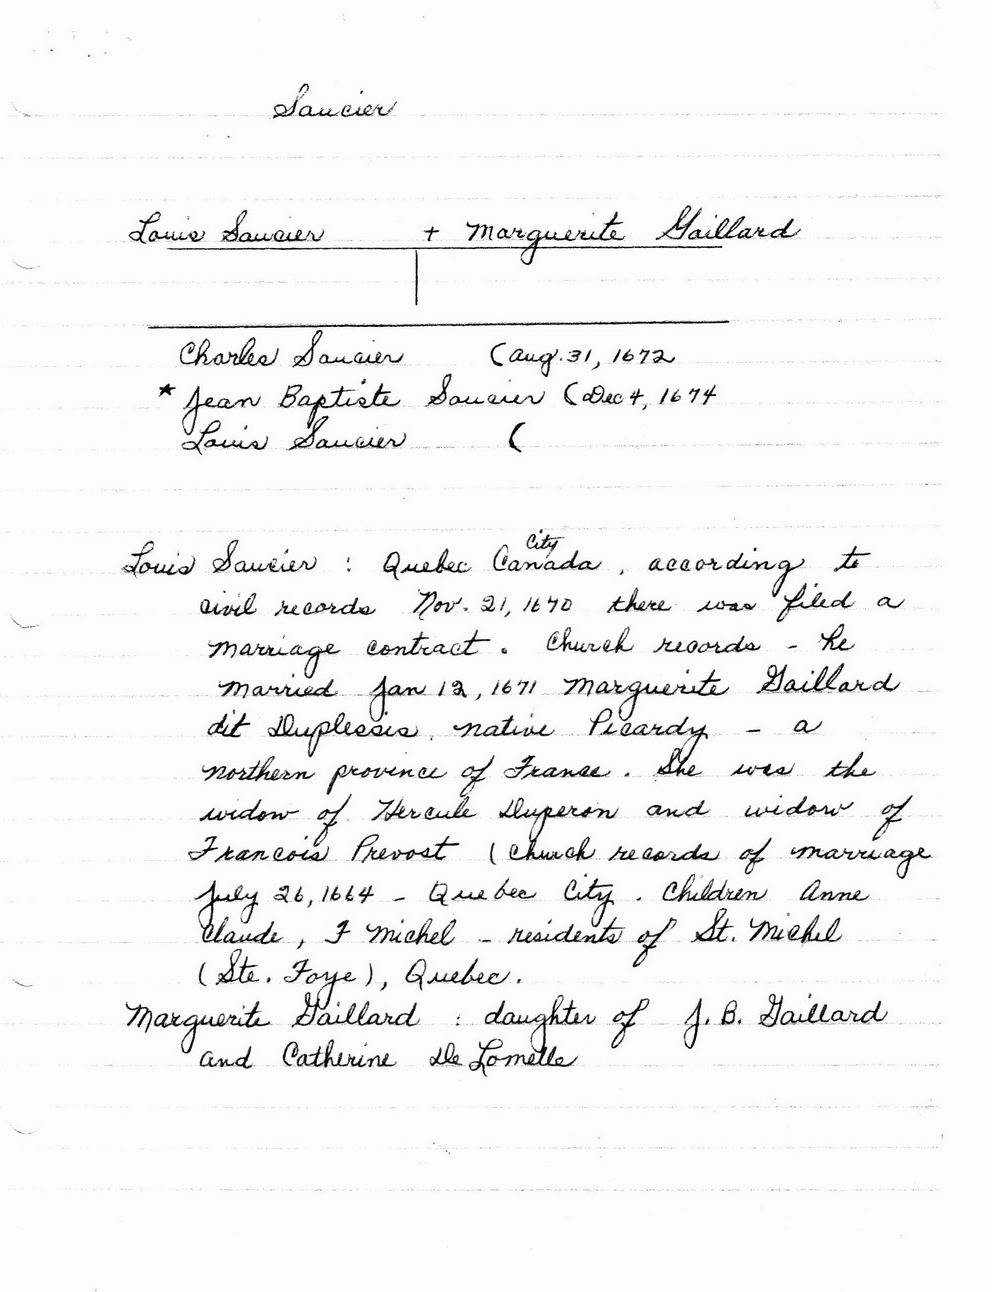 Saucier
Louis Saucier + Marguerite Gaillard
Charles Saucier (Aug. 31, 1672
* Jean Baptiste Saucier (Dec 4, 1674
Louis Saucier (
City
Louis Saucier : Quebec Canada, according to
civil records Nov. 21, 1670 there was filed a
marriage contract. Church records - he
married Jan 12, 1671 Marguerite Gaillard
dit Duplessis, native Picardy - a
northern province of France. She was the
widow of Hercule Duperon and widow of
Francois Prevost (church records of marriage
July 26, 1664 - Quebec City. Children Anne
Claude, F Michel - residents of St. Michel
(Ste. Foye), Quebec.
Marguerite Gaillard : daughter of J. B. Gaillard
and Catherine De Lomelle